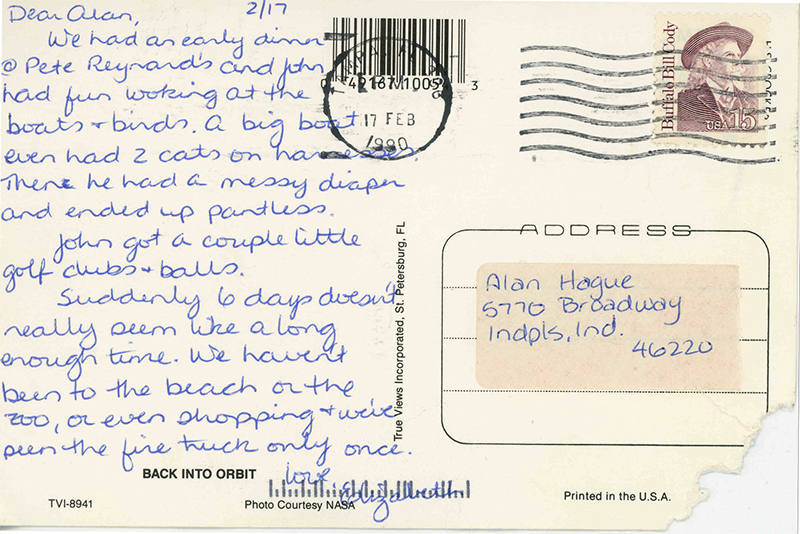 2/17
Dear Alan,
We had an early dinner
@ Pete Reynard's and John
had fun looking at the
boats + birds. A big boat
even had 2 cats on harnesses.
There he had a messy diaper
and ended up pantless.
John got a couple little
golf clubs + balls.
Suddenly 6 days doesn't
really seem like a long
enough time. We haven't
been to the beach or the
zoo, or even shopping + we've
seen the fire truck only once.
Love
Elizabeth
BACK INTO ORBIT
TVI-8941
Photo Courtesy NASA
True Views Incorporated, St. Petersburg, FL
TAMPA, FL
17 FEB
1990
Buffalo Bill Cody
USA 15
ADDRESS
Alan Hague
5770 Broadway
Indpls, Ind.
46220
Printed in the U.S.A.